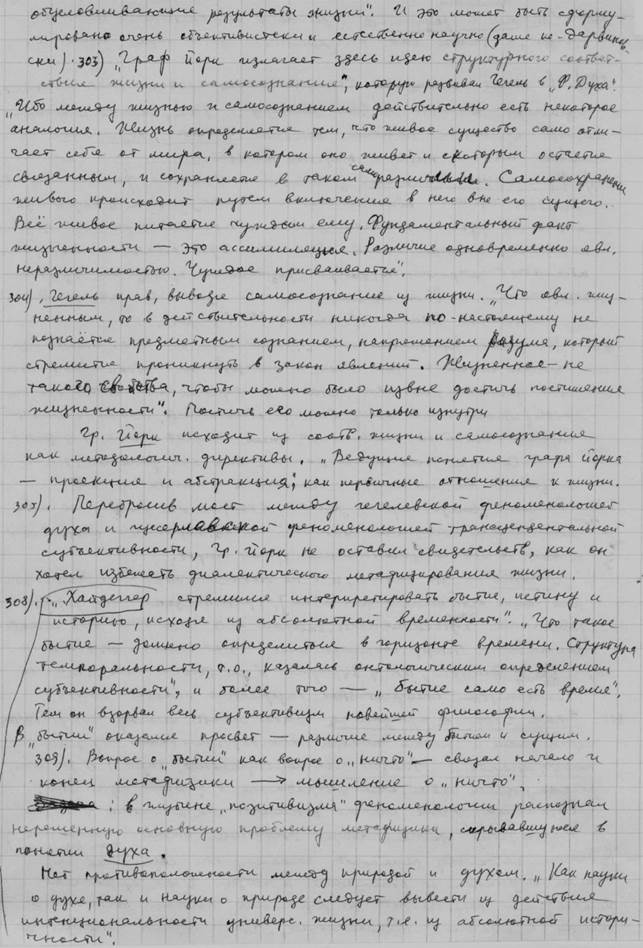 обусловливающие результаты жизни". И это может быть сформу-
лировано очень объективистски и естественно научно (даже не-дарвинов-
ски). 303) "Граф Йорк излагает здесь идею структурного соответ-
ствия жизни и самосознания", которую развивал Гегель в "Ф. Духа".
"Ибо между жизнью и самосознанием действительно есть некоторое
аналогия. Жизнь определяется тем, что живое существо само отли-
чает себя от мира, в котором оно живет и с которым остается
связанным, и сохраняется в таком само различении. Самосохранение
живого происходит путем включения в него вне его сущего.
Всё живое питается чуждым ему. Фундаментальный факт
жизненности — это ассимиляция. Различие одновременно явл.
неразличимостью. Чуждое присваивается".
304). Гегель прав, выводя самосознание из жизни. "Что явл. жиз-
ненным, то в действительности никогда по-настоящему не
познаётся предметным сознанием, напряжением разума, который
стремится проникнуть в закон явлений. Жизненное - не
такого свойства, чтобы можно было извне достичь постижения
жизненности". Постичь его можно только изнутри
Гр. Йорк исходит из соотв. жизни и самосознания
как методологич. директивы. "Ведущие понятия графа Йорка
— проекция и абстракция", как первичные отношения к жизни.
305). Перебросив мост между гегелевской феноменологией
духа и гуссерлевской феноменологией трансцендентальной
субъективности, Гр. Йорк не оставил свидетельств, как он
хотел избежать диалектического метафизирования жизни.
308). "Хайдеггер стремился интерпретировать бытие, истину и
историю, исходя из абсолютной временности". "Что такое
бытие — должно определиться в горизонте времени. Структура
темпоральности, т.о., казалась онтологическим определением
субъективности", и более того — "бытие само есть время".
Тем он взорвал весь субъективизм новейшей философии.
В "бытии" оказался просвет — различие между бытием и сущим.
309). Вопрос о "бытии" как вопрос о "ничто" — связал начало и
конец метафизики → мышление о "ничто".
: в глубине "позитивизма" феноменологии распознал
нерешенную основную проблему метафизики, скрывавшуюся в
понятии духа.
Нет противоположности между природой и духом. "Как науки
о духе, так и науки о природе следует вывести из действия
интенциональности универс. жизни, т.е. из абсолютной истори-
чности".